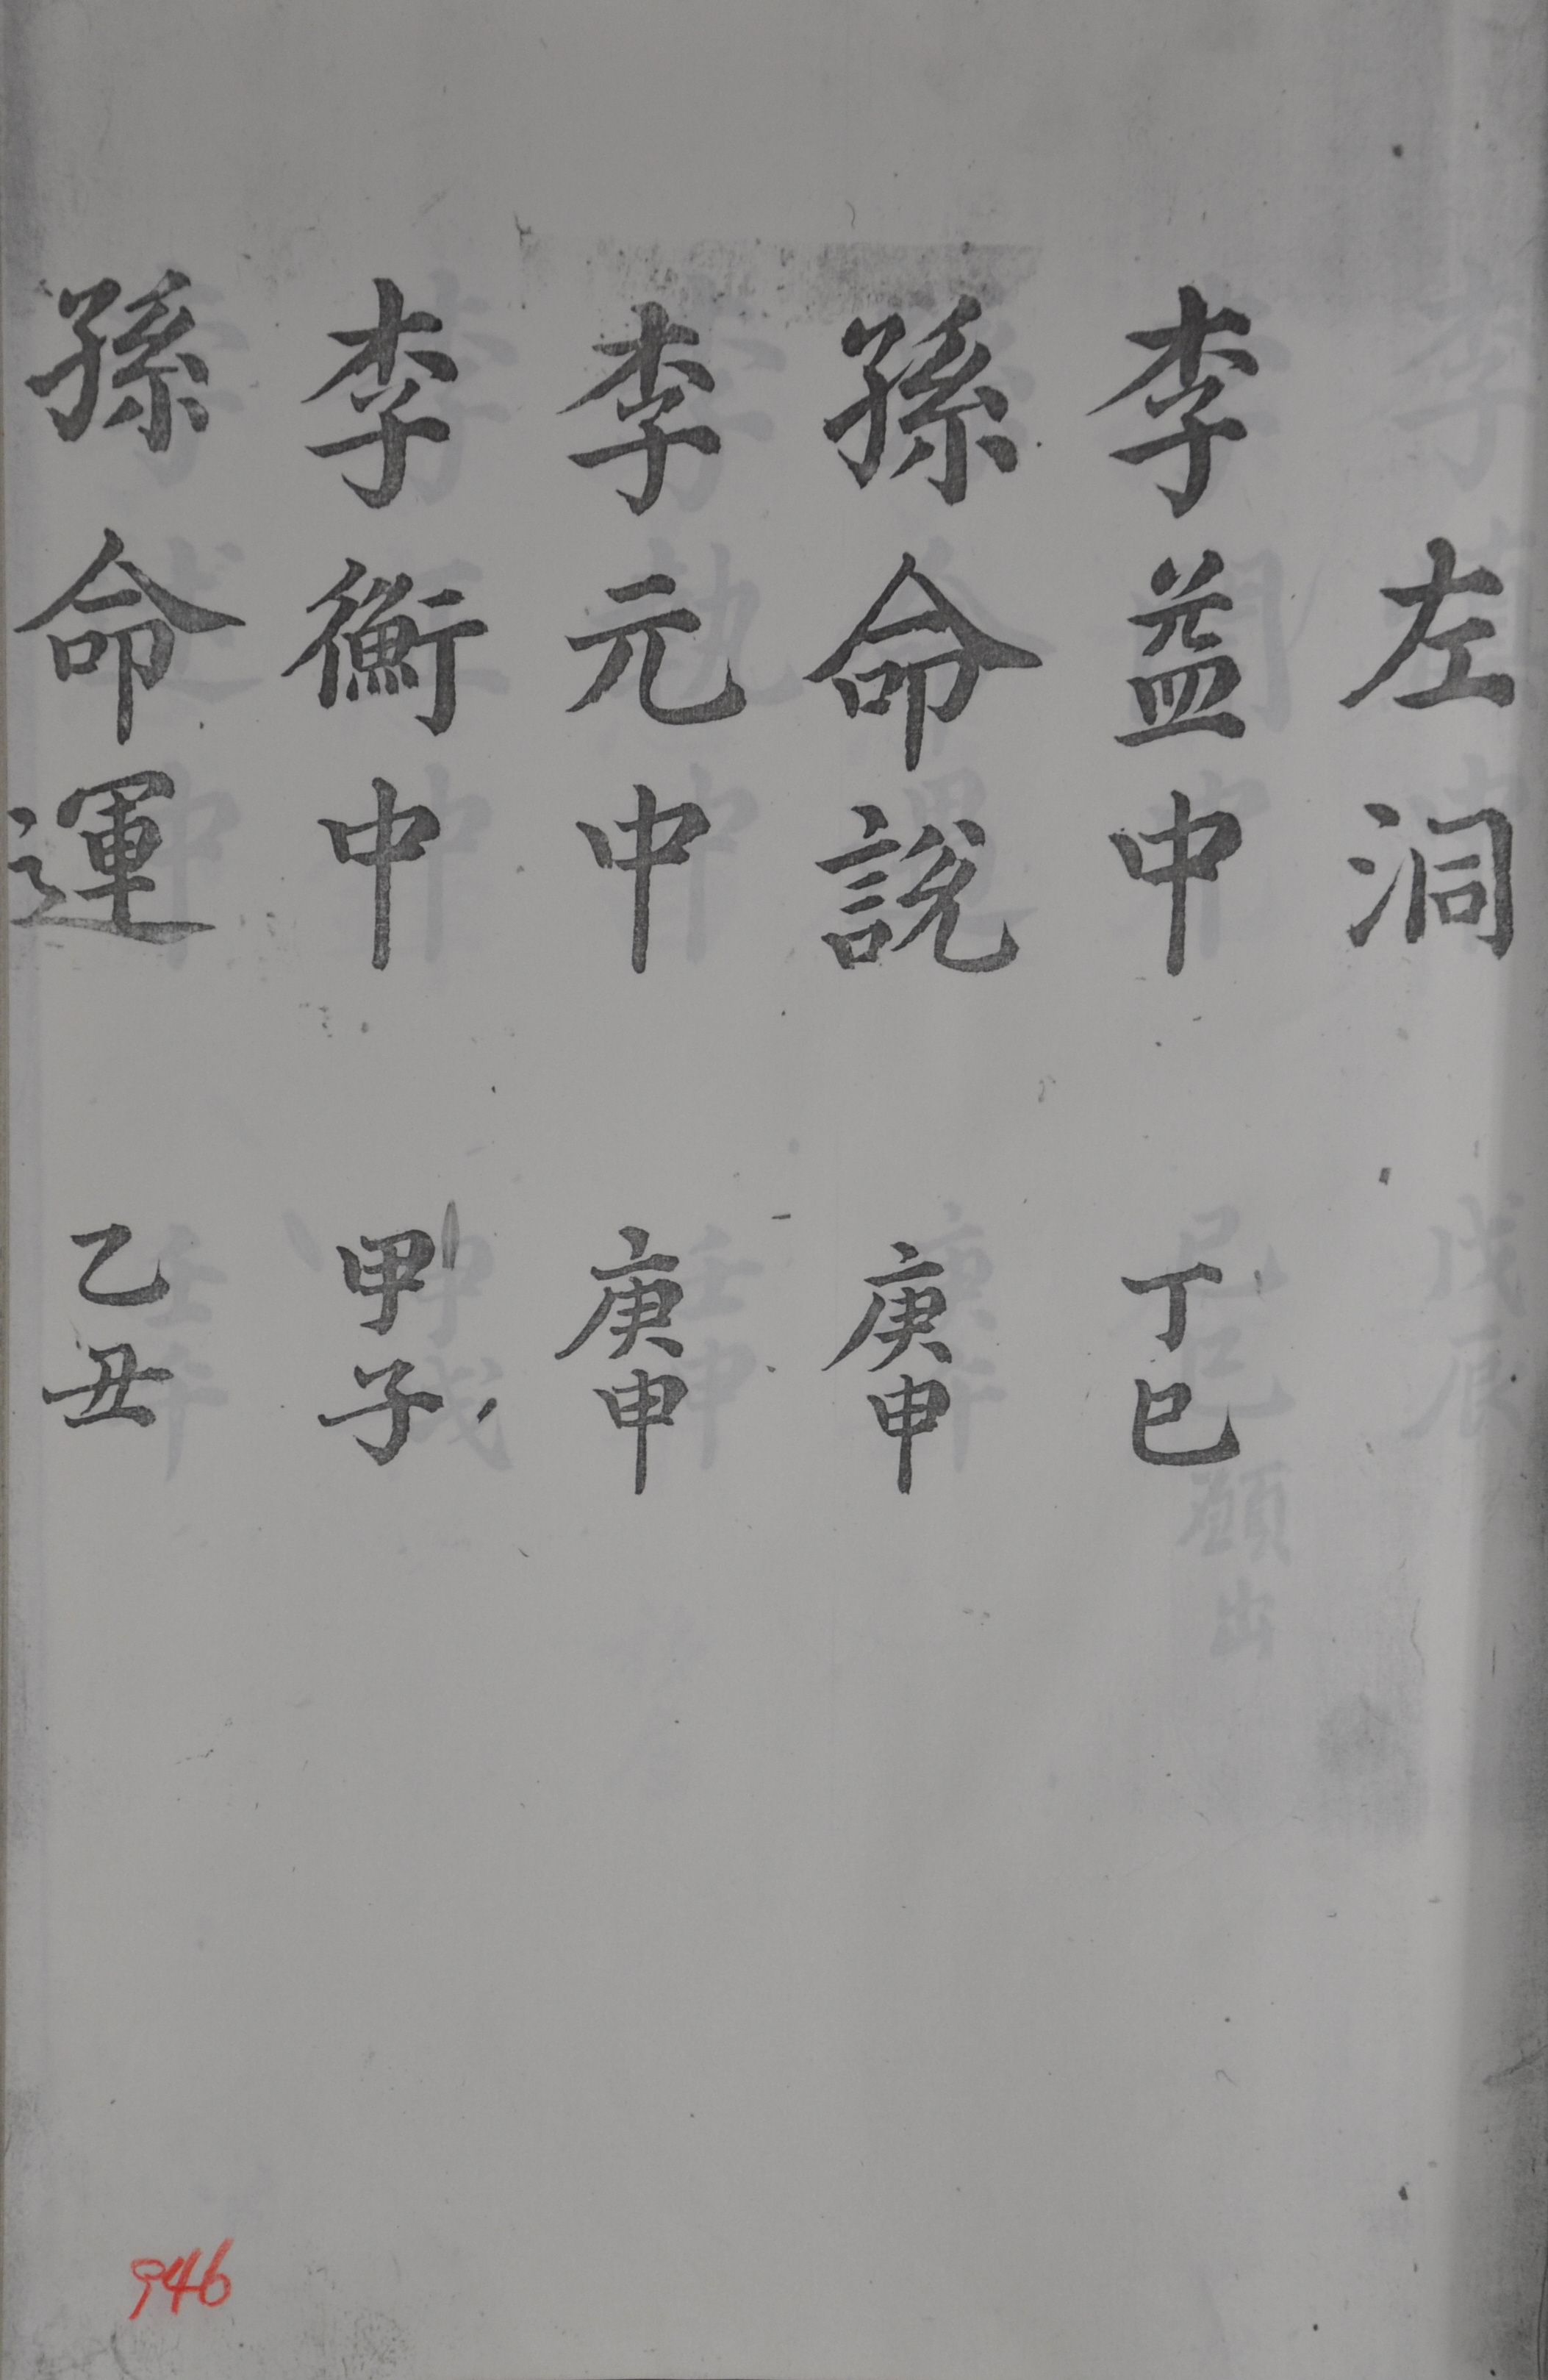 左洞
李益中 丁巳
孫命說 庚申
李元中 庚申
李衡中 甲子
孫命運 乙丑
946